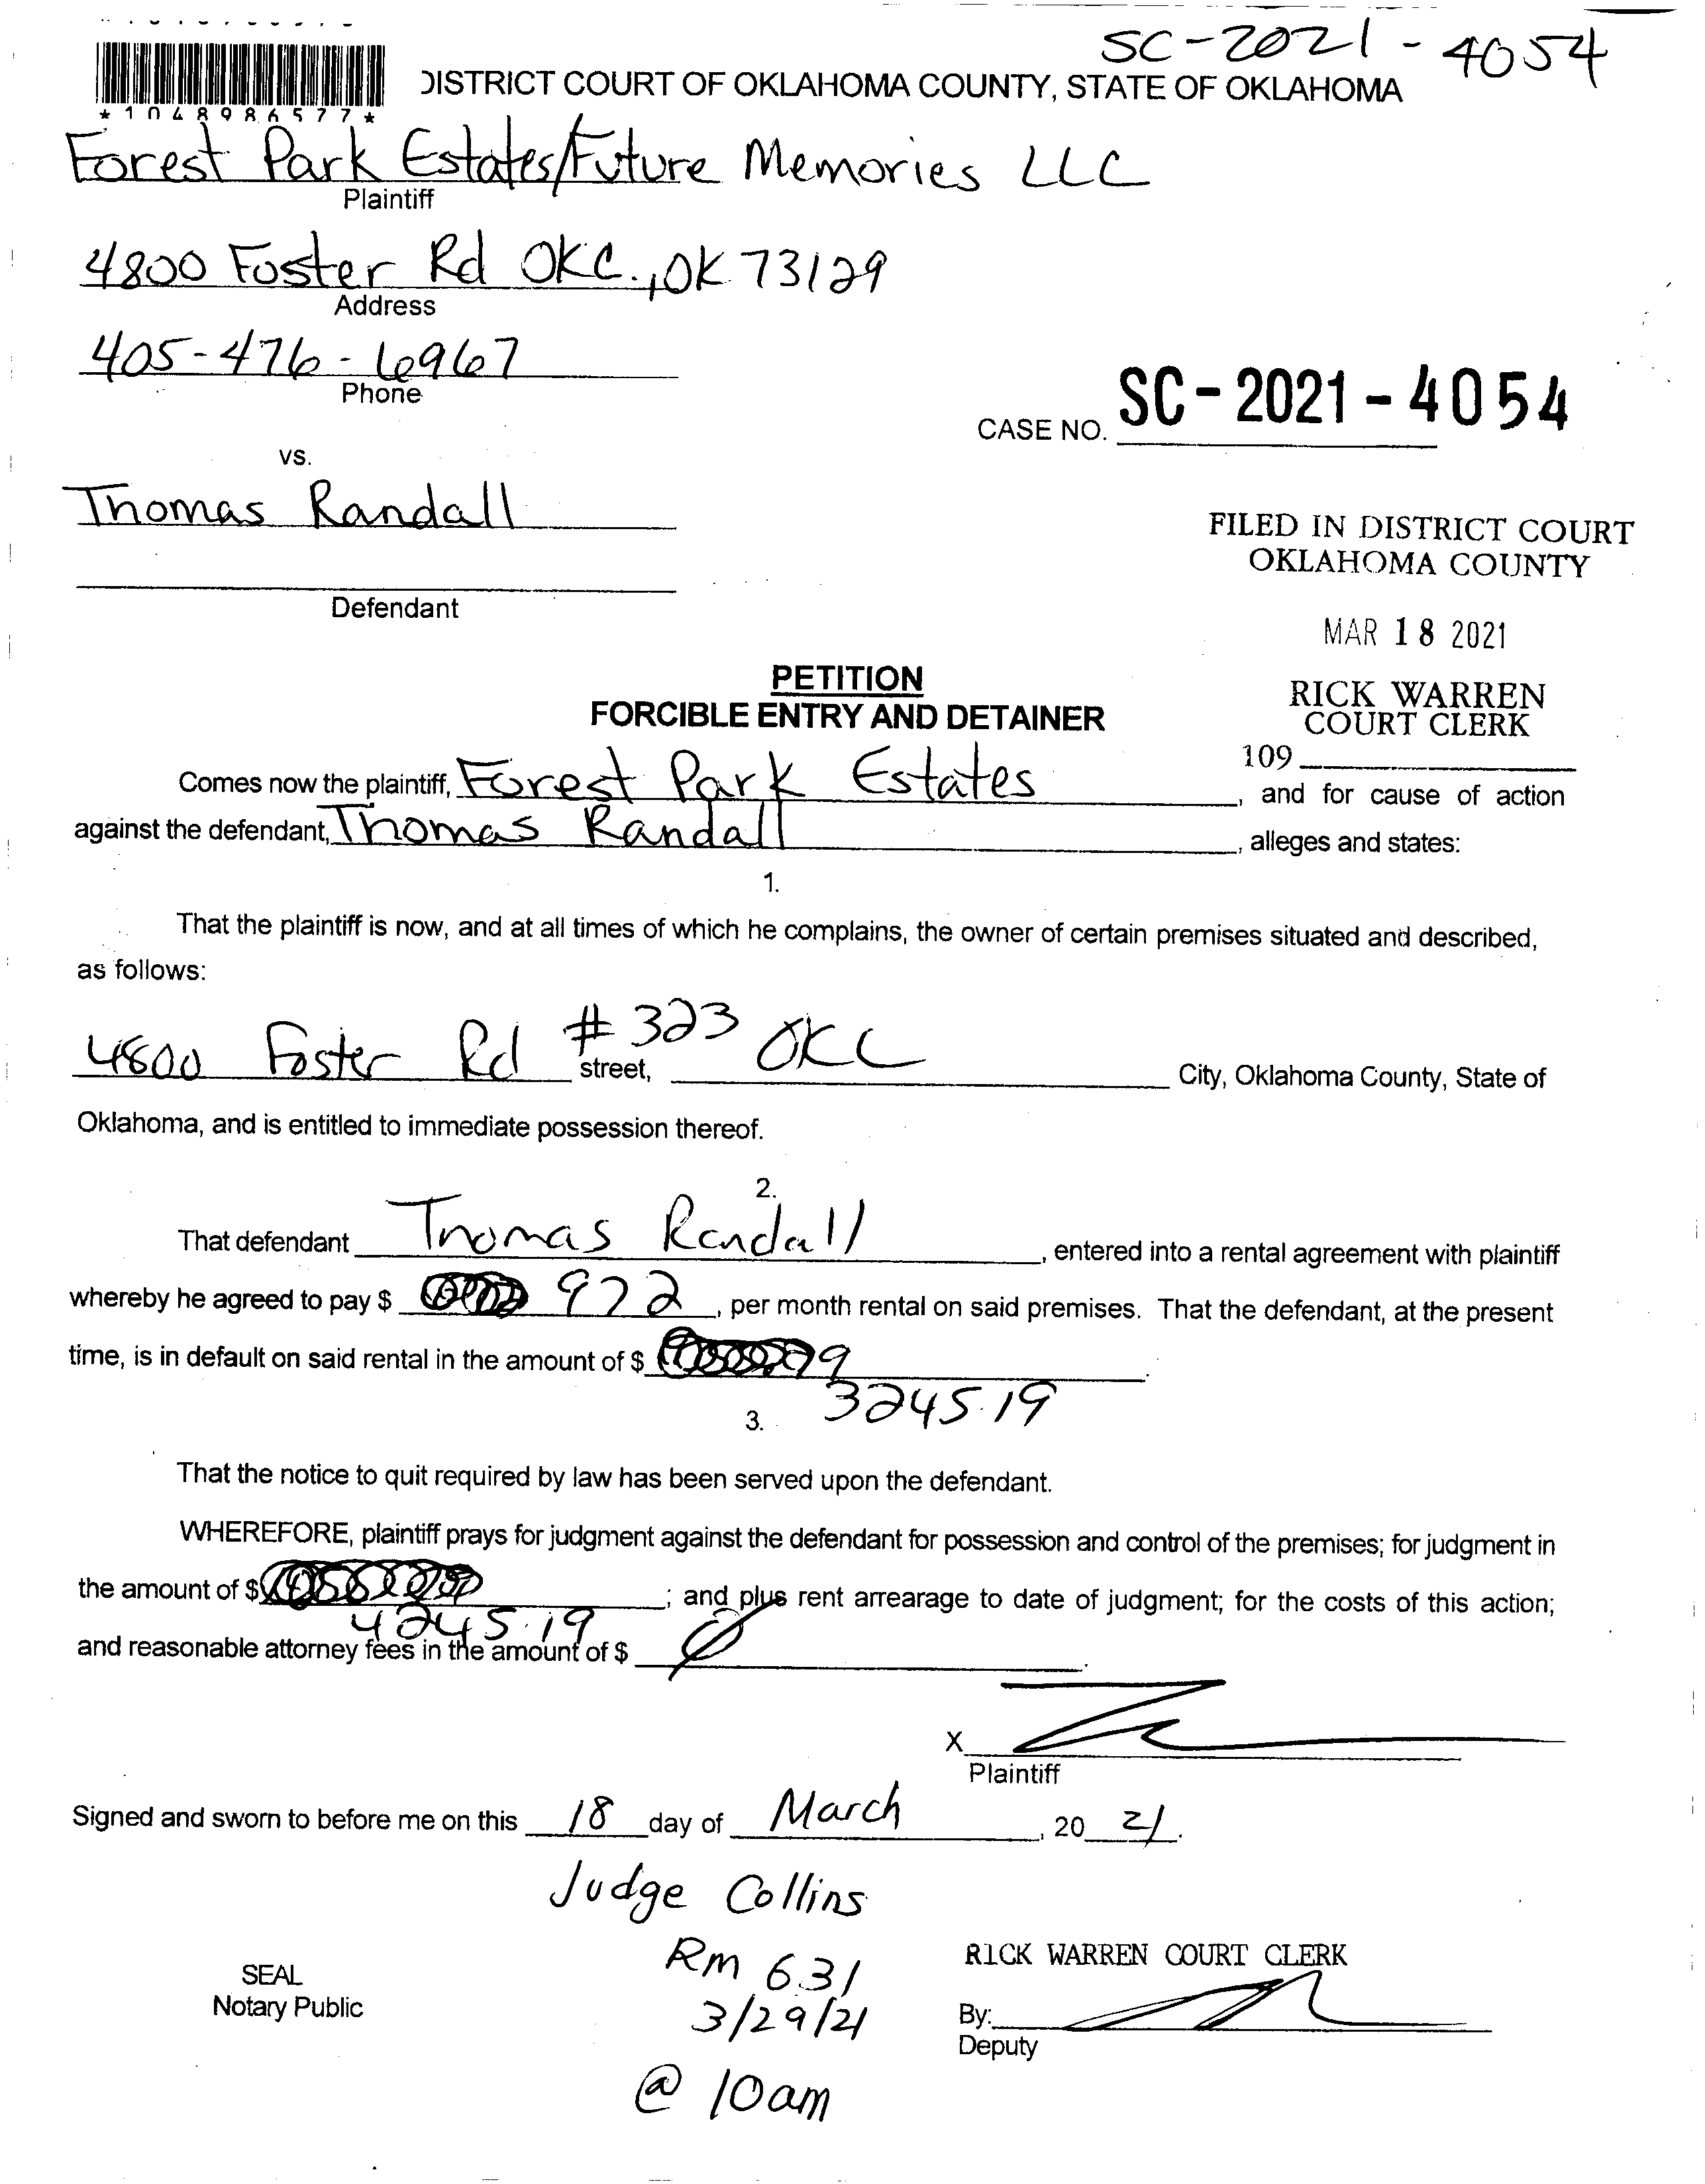 SC-2021-4054
DISTRICT COURT OF OKLAHOMA COUNTY, STATE OF OKLAHOMA
*1048986577*
Forest Park Estates/Future Memories LLC
Plaintiff
4800 Foster Rd OKC., OK 73129
Address
405-476-6967
Phone
CASE NO. SC-2021-4054
vs.
Thomas Randall
FILED IN DISTRICT COURT
OKLAHOMA COUNTY
Defendant
MAR 18 2021
PETITION
FORCIBLE ENTRY AND DETAINER
RICK WARREN
COURT CLERK
109
Comes now the plaintiff, Forest Park Estates, and for cause of action
against the defendant, Thomas Randall, alleges and states:
1.
That the plaintiff is now, and at all times of which he complains, the owner of certain premises situated and described,
as follows:
4800 Foster Rd #323 street, OKC City, Oklahoma County, State of
Oklahoma, and is entitled to immediate possession thereof.
2.
That defendant Thomas Randall, entered into a rental agreement with plaintiff
whereby he agreed to pay $ 972, per month rental on said premises. That the defendant, at the present
time, is in default on said rental in the amount of $
3245.19
3.
That the notice to quit required by law has been served upon the defendant.
WHEREFORE, plaintiff prays for judgment against the defendant for possession and control of the premises; for judgment in
the amount of $ ; and plus rent arrearage to date of judgment; for the costs of this action;
4245.19
and reasonable attorney fees in the amount of $ Ø.
X
Plaintiff
Signed and sworn to before me on this 18 day of March, 20 21.
Judge Collins
Rm 631
3/29/21
@ 10am
SEAL
Notary Public
RICK WARREN COURT CLERK
By:
Deputy